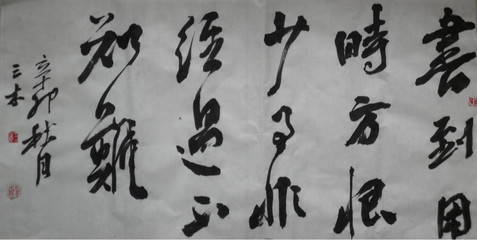 書到用
時方恨
少事非
經過不
知難
辛卯秋月
三木